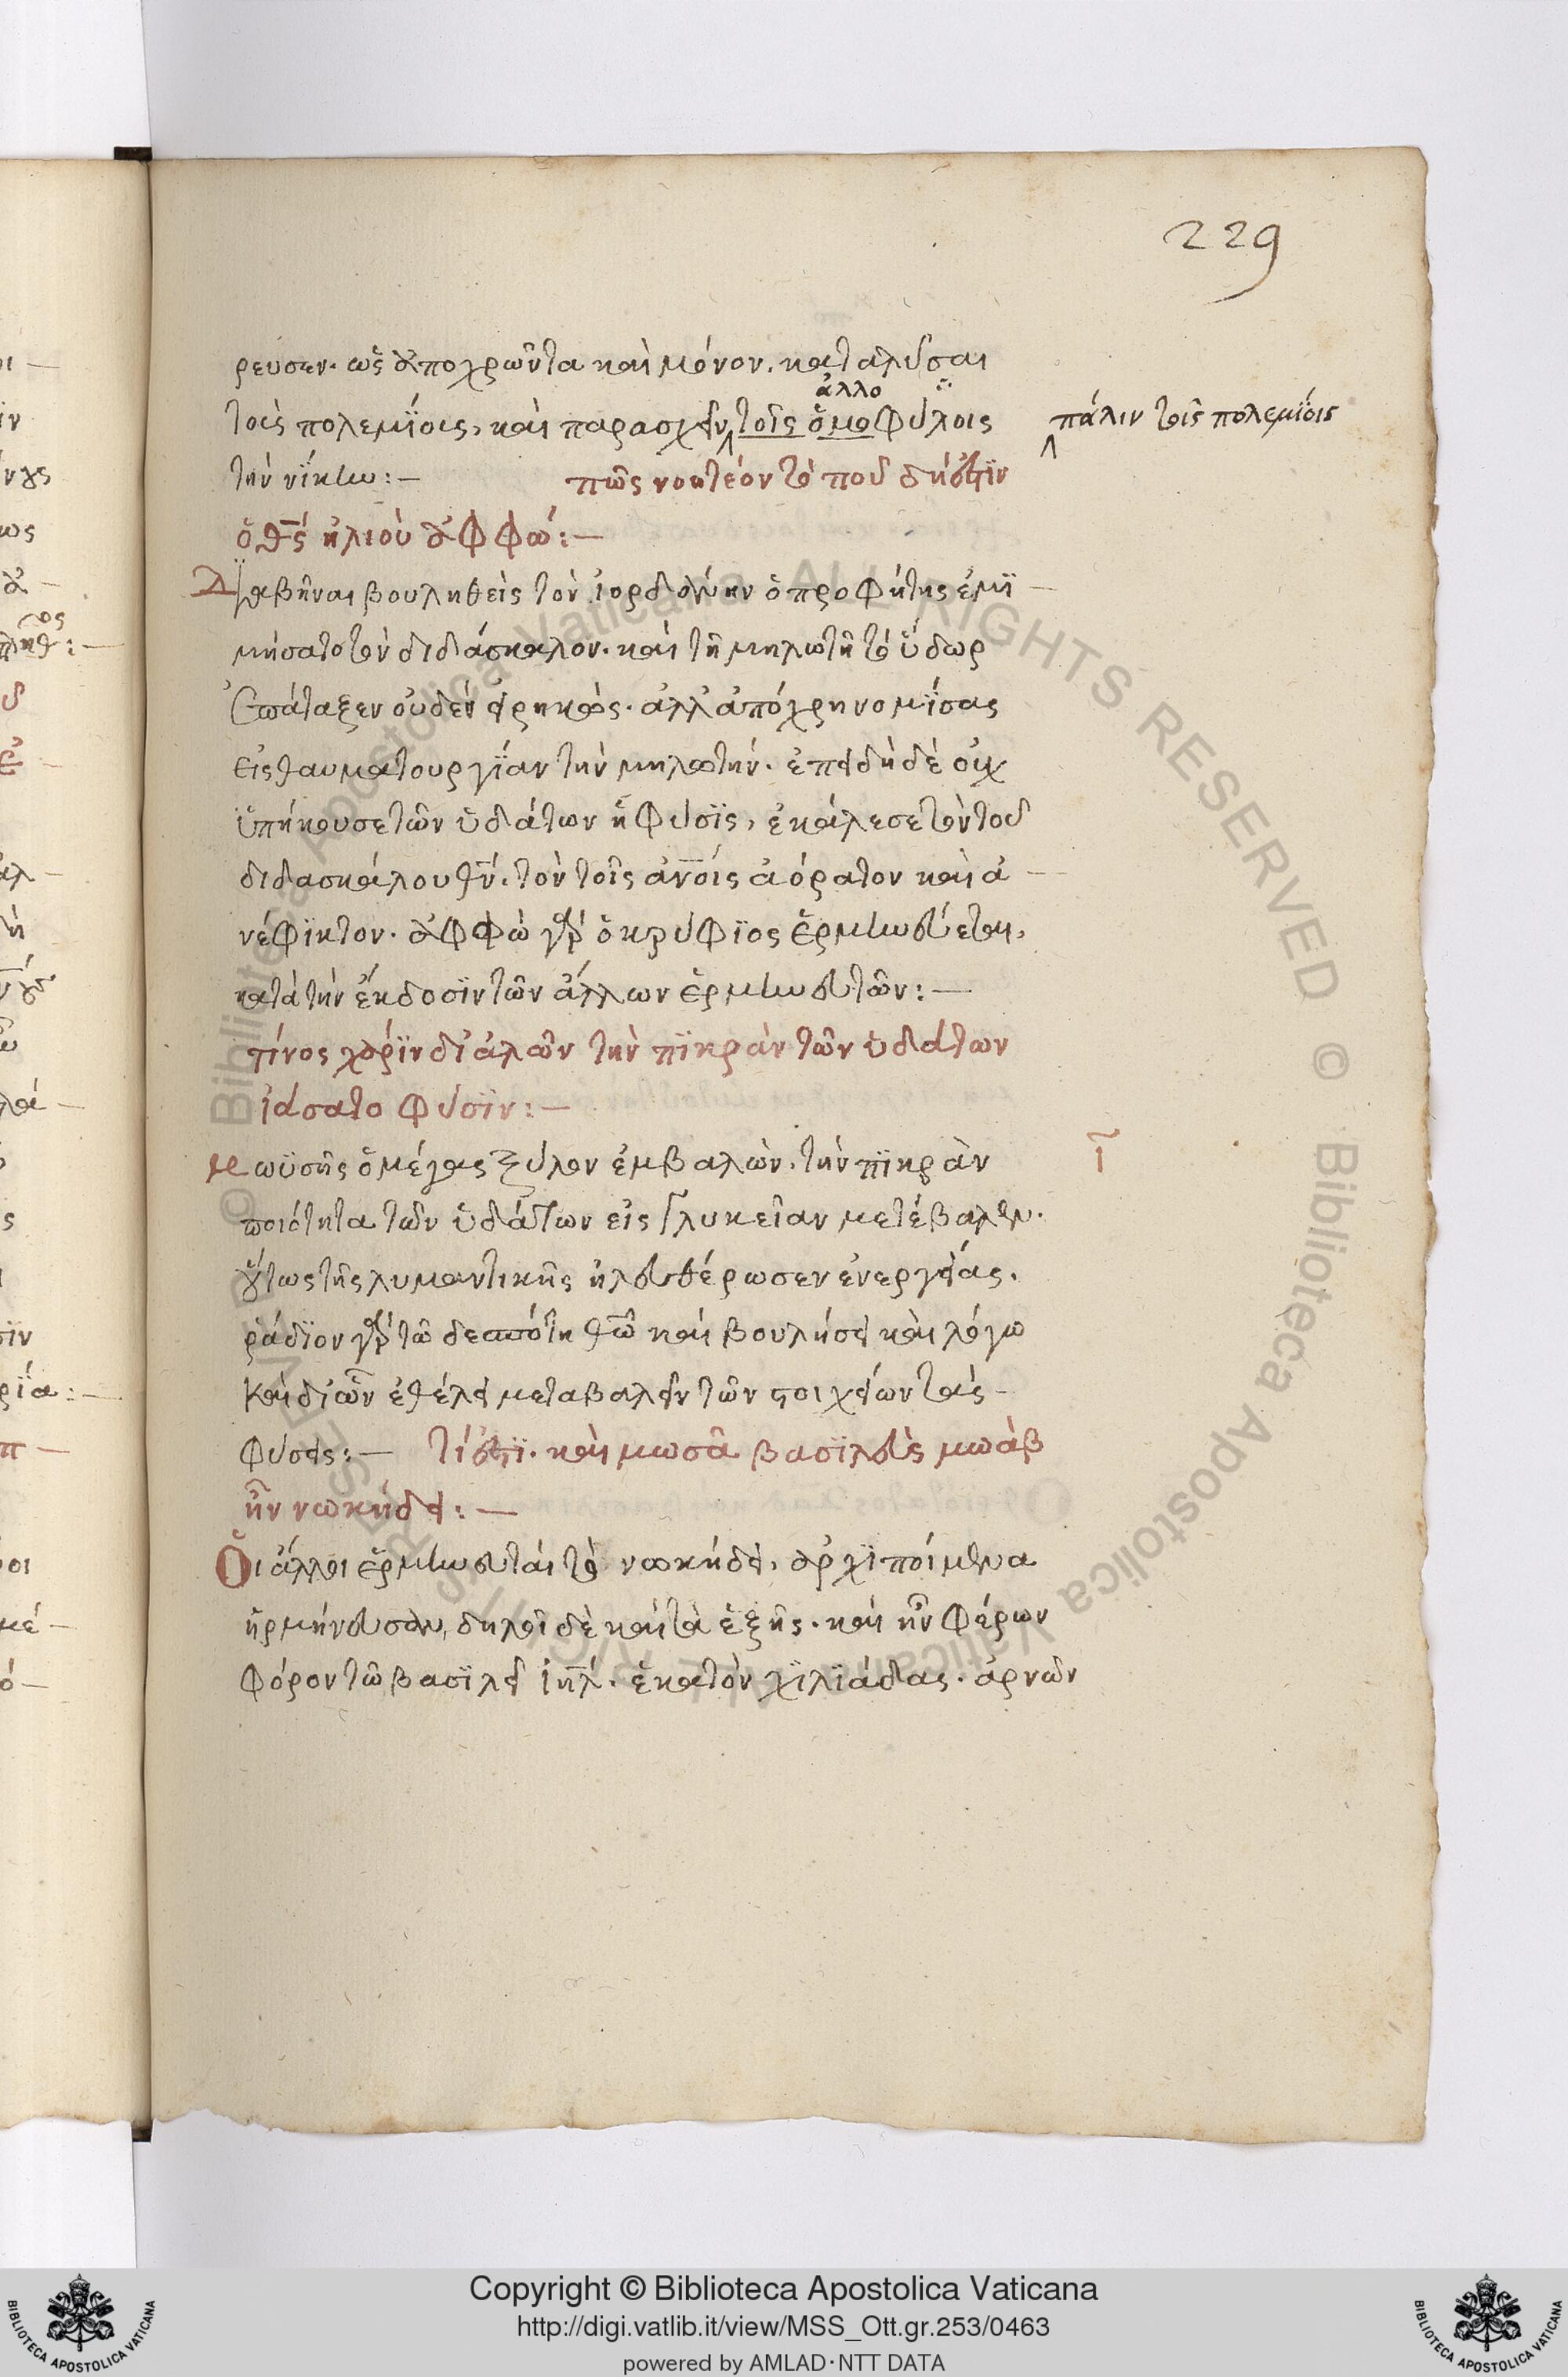 229
ρευσεν. ὡς ἀποχρῶντα καὶ μόνον. καταλῦσαι
ἀλλο
τοὺς πολεμΐους, καὶ παρασχεῖν τοῖς ὁμοφύλοις
πάλιν τοῖς πολεμΐοις
τὴν νΐκην :— πῶς νοητέον τὸ ποῦ δὴ ἐστὶν
ὁ θς ἠλιοὺ ἀφφώ :—
Διαβῆναι βουληθεὶς τὸν ἰορδάνην ὁ προφήτης ἐμϊ —
μήσατο τὸν διδάσκαλον. καὶ τῆ μηλωτῆ τὸ ὕδωρ
ἐπάταξεν οὐδὲν εἰρηκὼς. ἀλλ' ἀπόχρη νομΐσας
εἰς θαυματουργΐαν τὴν μηλωτήν. ἐπειδὴ δὲ οὐχ
ὑπήκουσε τῶν ὑδάτων ἡ φύσϊς, ἐκάλεσε τὸν τοῦ
διδασκάλου θν. τὸν τοῖς ἀνοις ἀόρατον καὶ ἀ —
νέφϊκτον. ἀφφὼ γὰρ ὁ κρύφϊος ἑρμηνεύεται,
κατὰ τὴν ἔκδοσϊν τῶν ἄλλων ἑρμηνευτῶν :—
τίνος χάρϊν δι' ἁλῶν τὴν πϊκρὰν τῶν ὑδάτων
ἰάσατο φύσϊν :—
Μωϋσῆς ὁ μέγας ξύλον ἐμβαλὼν. τὴν πϊκρὰν
ποιότητα τῶν ὑδάτων εἰς γλυκεῖαν μετέβαλεν.
οὕτως τῆς λυμαντικῆς ἠλευθέρωσεν ἐνεργείας.
ῥάδϊον γὰρ τῶ δεσπότη θῶ καὶ βουλήσει καὶ λόγω
καὶ δι' ὧν ἐθέλει μεταβαλεῖν τῶν στοιχείων τὰς —
φύσεις :— τί ἐστϊ. καὶ μωσᾶ βασϊλεὺς μωὰβ
ἦν νωκήδει :—
Οἱ ἄλλοι ἑρμηνευταὶ τὸ νωκήδει, ἀρχϊποίμενα
ἡρμήνευσαν, δηλοῖ δὲ καὶ τὰ ἑξῆς. καὶ ἦν φέρων
φόρον τῶ βασϊλεῖ ιηλ. ἑκατὸν χϊλϊάδας. ἀρνῶν
Copyright © Biblioteca Apostolica Vaticana
http://digi.vatlib.it/view/MSS_Ott.gr.253/0463
powered by AMLAD·NTT DATA